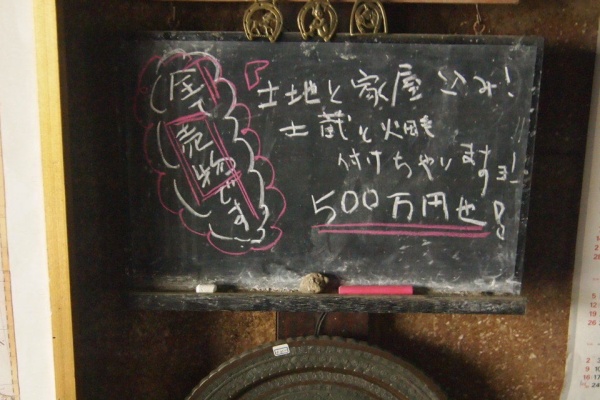 全て
売物
です
土地と家屋込み!
土蔵と火暖
付けちゃいますョ!
500万円也!